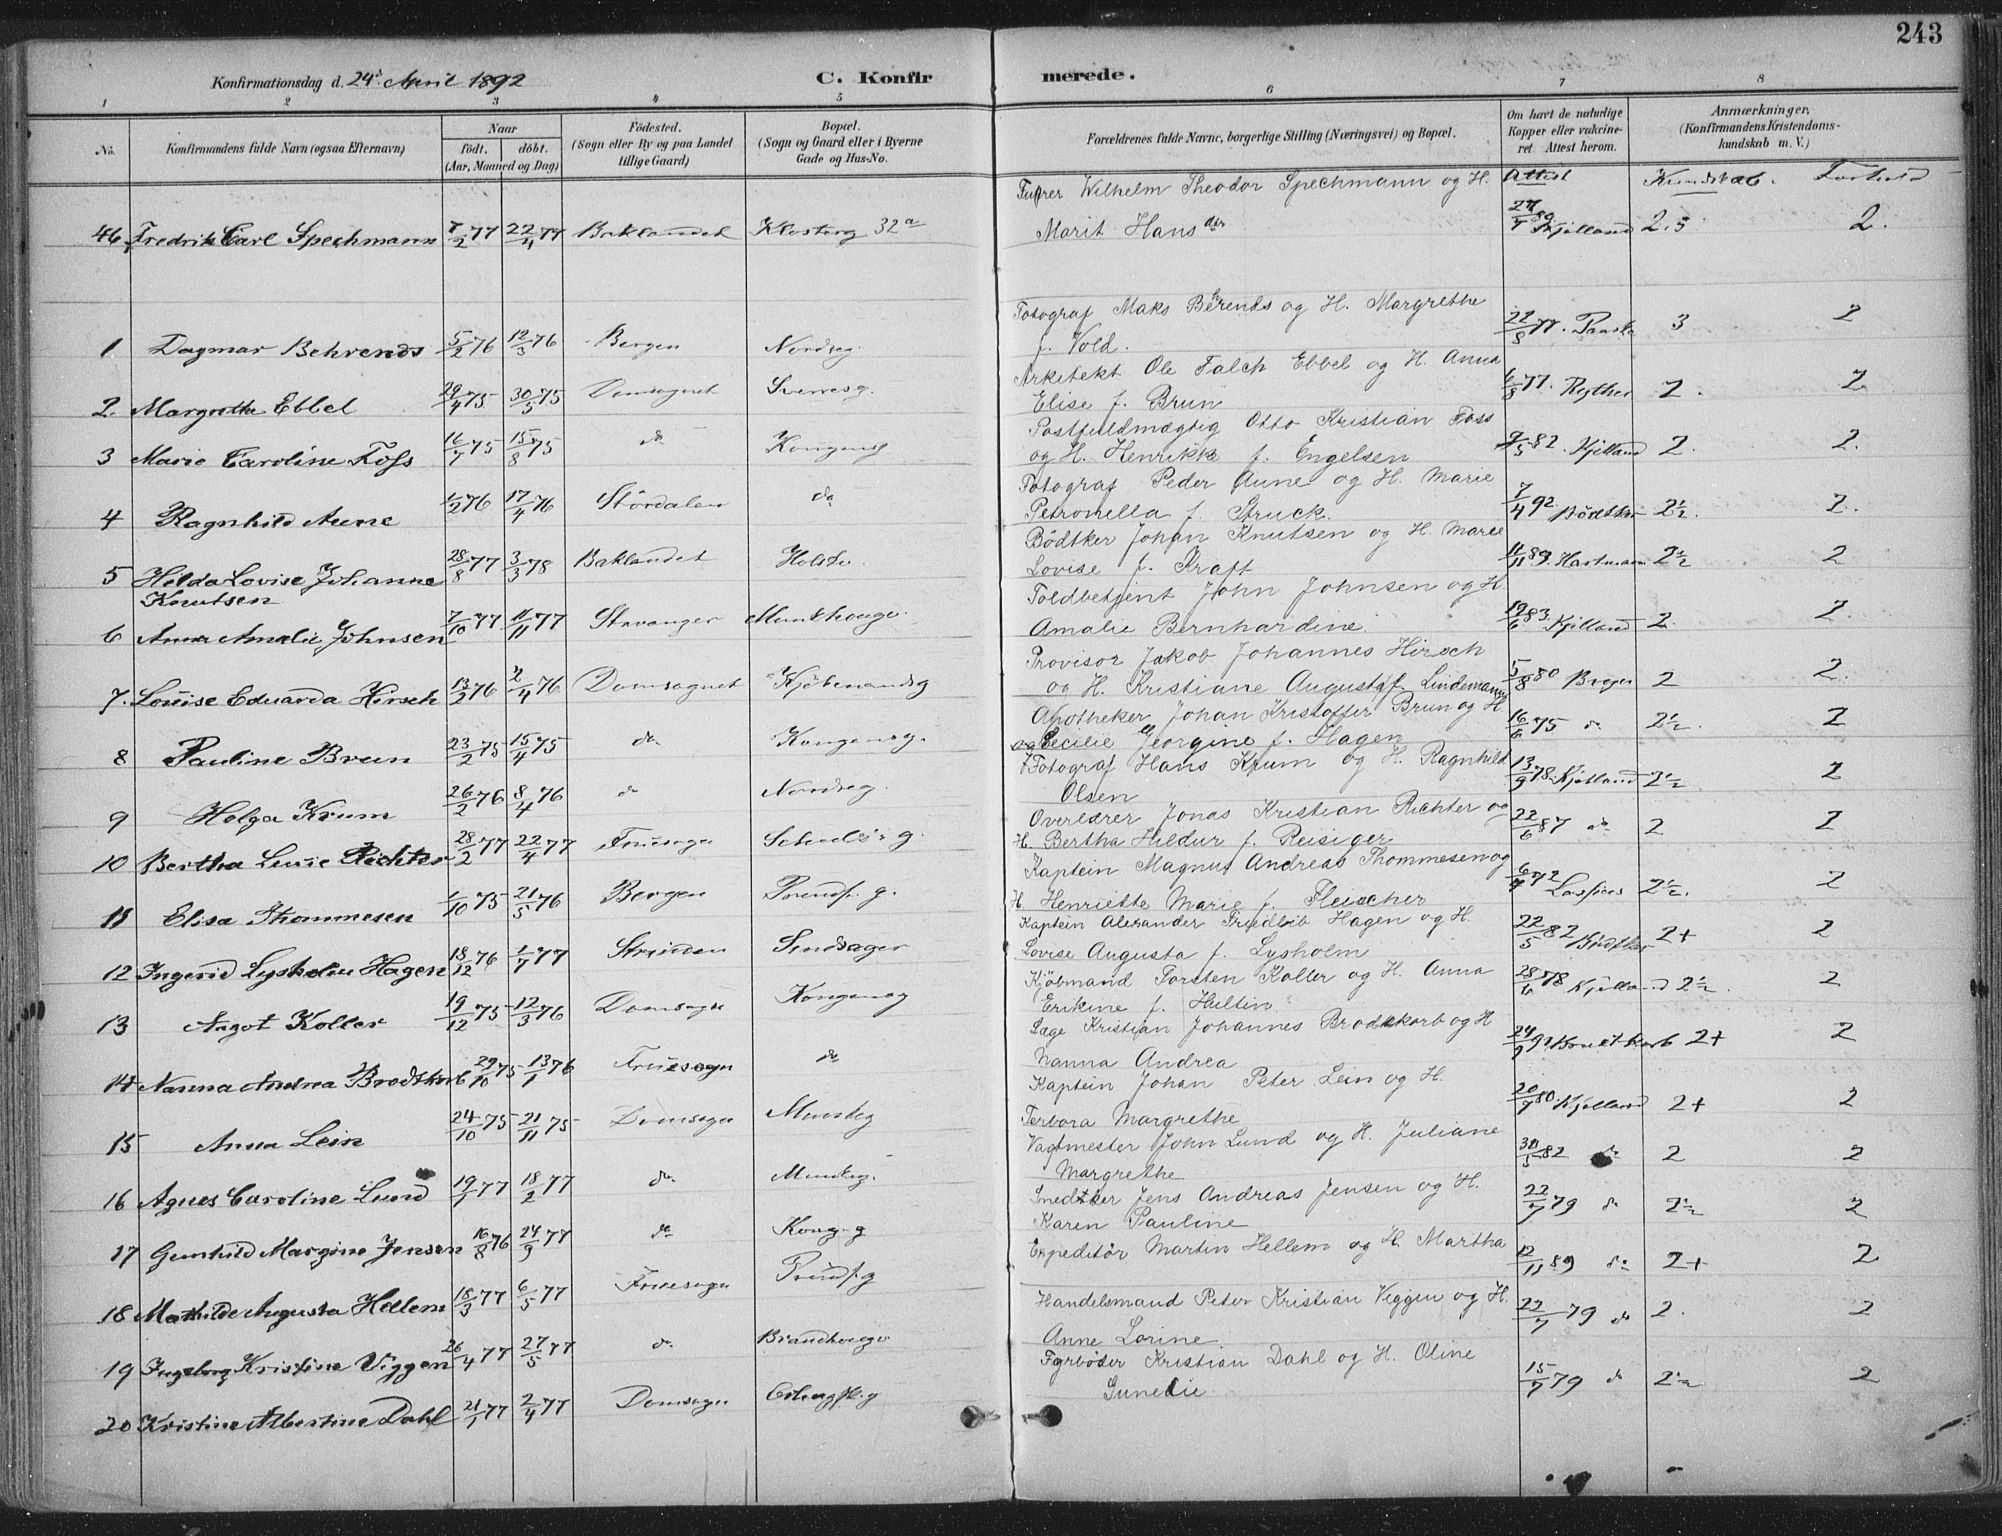 243
Konfirmationsdag d. 24de April 1892
C. Konfirmerede.
1 2 3 4 5 6 7 8
No. Konfirmandens fulde Navn (ogsaa Efternavn) Naar født. døbt. (Aar, Maaned og Dag) Fødested. (Sogn eller By og paa Landet tillige Gaard) Bopæl. (Sogn og Gaard eller i Byerne Gade og Hus-No. Forældrenes fulde Navne, borgerlige Stilling (Næringsvei) og Bopæl. Om havt de naturlige Kopper eller vakcineret. Attest herom. Anmærkninger. (Konfirmandens Kristendomskundskab m. V.)
Attest Kundskab. Forhold
46 Fredrik Carl Spechmann 7/2 77 22/4 77 Baklandet Klosterg 32a Furer Wilhelm Theodor Spechmann og H. Marit Hansdtr Kjelland 2.5 2.
1 Dagmar Behrends 5/2 76 12/3 76 Bergen Nordreg. Fotograf Maks Behrends og H. Margrethe f. Vold. 22/8 77. 3 2
2. Margrethe Ebbel 29/4 75 30/5 75 Domsognet Sverresg. Arkitekt Ole Falch Ebbel og H. Anna Elise f. Brun 6/8 77. 2. 2.
3 Marie Caroline Foss 16/7 75 15/8 75 do Kongensg Postfuldmægtig Otto Kristian Foss og H. Henrikke f. Engelsen 9/5 82. Kjelland 2. 2.
4 Ragnhild Aune 1/2 76 17/4 76 Stördalen do Fotograf Peder Aune og H. Marie Petronella f. Struck. 7/4 92 Bödtker 2½. 2.
5 Helda Lovise Johanne Knutsen 28/8 77 3/3 78 Baklandet Bödtker Johan Knutsen og H. Marie Lovise f. Kraft 11/11 89. Hartmann 2½ 2
6 Anna Amalie Johnsen 7/10 77 11/11 77 Stavanger Munkhauge. Toldbetjent John Johnsen og H. Amalie Bernhardine. 19/6 83. Kjelland 2. 2.
7. Louise Eduarda Hirsch 13/2 76 2/4 76 Domsognet Kjöbmandsg Provisor Jakob Johannes Hirsch og H. Kristiane Augusta f. Lindemann 5/8 80 2 2.
8 Pauline Brun 23/2 75 15/4 75 do. Kongensg. Apotheker Johan Kristoffer Brun og H. Cecilie Georgine f. Hagen 16/6 75 do 2½. 2
9 Helga Krum 26/2 76 8/4 76 do Nordreg. Fotograf Hans Krum og H. Ragnhild Olsen 13/9 78. Kjelland 2½. 2
10 Bertha Richter 28/2 77 22/4 77 Fruesogn Overlærer Jonas Kristian Richter og H. Bertha Hildur f. Reisiger 22/6 87 do 2 2
11 Elisa Thommesen 1/10 75 21/5 76 Bergen Prinds. g. Kaptein Magnus Andreas Thommesen og H. Henriette Marie f. Fleischer 2½. 2
12 Ingerid Lysholm Hagen 18/12 76 1/7 77 Strinden Kaptein Alexander Fredrik Hagen og H. Lovise Augusta f. Lysholm 22/5 82 Bödtker 2+ 2
13 Aagot Koller 19/12 75 12/3 76 Domsogn Kongensg Kjöbmand Torsten Koller og H. Anna Erikine f. Hultin. 28/6 78 Kjelland 2½. 2
14 Nanna Andrea Brodtkorb 29/10 75 13/1 76 Fruesogn do Læge Kristian Johannes Brodtkorb og H Nanna Andrea 24/9 91 Brodtkorb 2+ 2
15 Anna Lein 24/10 75 21/11 75 Domsogn Munkeg Kaptein Johan Peter Lein og H. Terbora Margrethe 20/9 80 Kjelland 2+ 2
16 Agnes Caroline Lund 19/1 77 18/2 77 do. Munkeg. Vagtmester John Lund og H. Juliane Margrethe 30/5 82 do 2 2
17 Gunhild Margine Jensen 16/8 76 24/9 77 do Kong. g Snedker Jens Andreas Jensen og H. Karen Pauline 22/7 79 do 2½ 2
18 Mathilde Augusta Hellem 18/3 77 6/5 77 Fruesogn Prinds. g Expeditör Martin Hellem og H. Martha 12/11 89 do 2+ 2
19 Ingeborg Kristine Viggen 26/4 77 27/5 77 do. Brandhauge Handelsmand Peter Kristian Viggen og H. Anne Lorine 22/7 79 do 2. 2
20 Kristine Albertine Dahl 21/1 77 2/4 77 Domsogn Fyrböder Kristian Dahl og H. Oline Gunelie 15/7 79 do 2½ 2